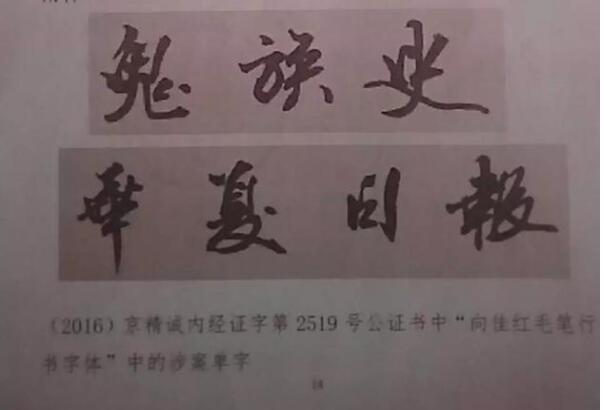 鬼族史
華夏日報
（2016）京精诚内经证字第 2519 号公证书中“向佳红毛笔行
书字体”中的涉案单字